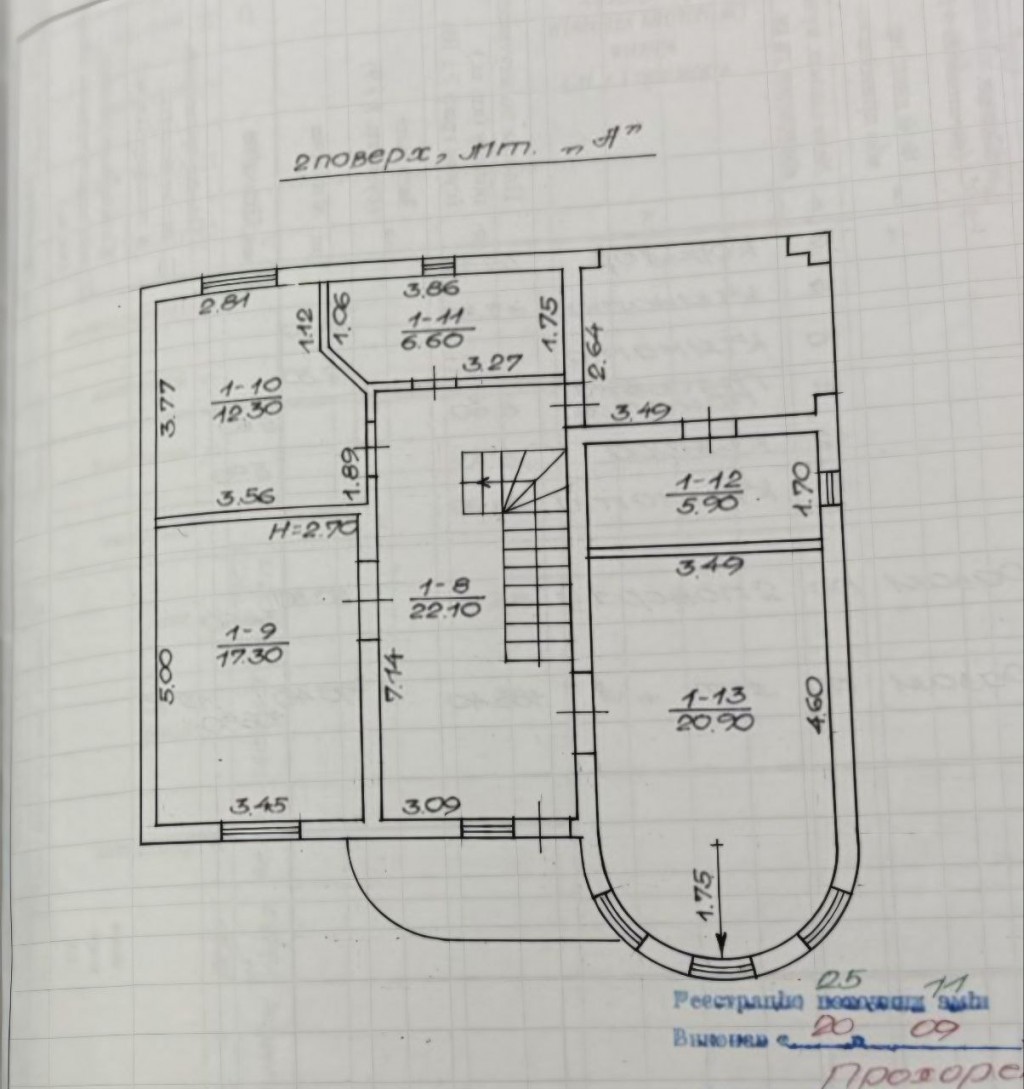 2 поверх, літ. „А”
2.81
3.86
1.12
1.06
1-11
6.60
1.75
3.27
2.64
3.77
1-10
12.30
3.49
1.89
3.56
H=2.70
1-12
5.90
1.70
3.49
1-8
22.10
1-9
17.30
5.00
7.14
1-13
20.90
4.60
3.45
3.09
1.75
25 11
20 09
Прохоре